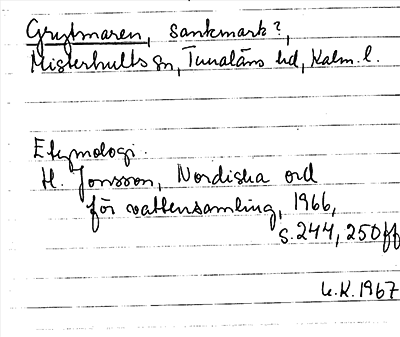 Grytmaren, sankmark?,
Misterhults sn, Tunaläns hd, Kalm. l.
Etymologi.
H. Jonsson, Nordiska ord
för vattensamling, 1966,
s. 244, 250 ff
L.K. 1967